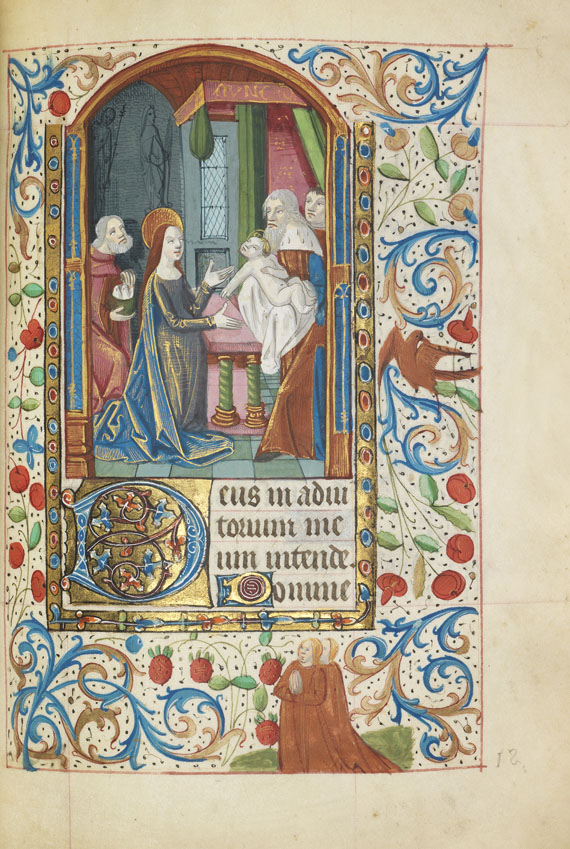 NVNC
Deus in adiu
torium me
um intende.
Domine
18